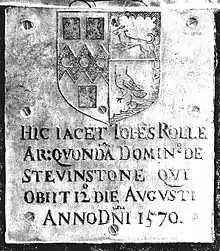 HIC IACET IOHĒS ROLLE
AR: QVONDĀ DOMIN9 DE
STEVINSTONE QVI
OBIIT 12º DIE AVGVSTI
ANNO DÑI 1570.